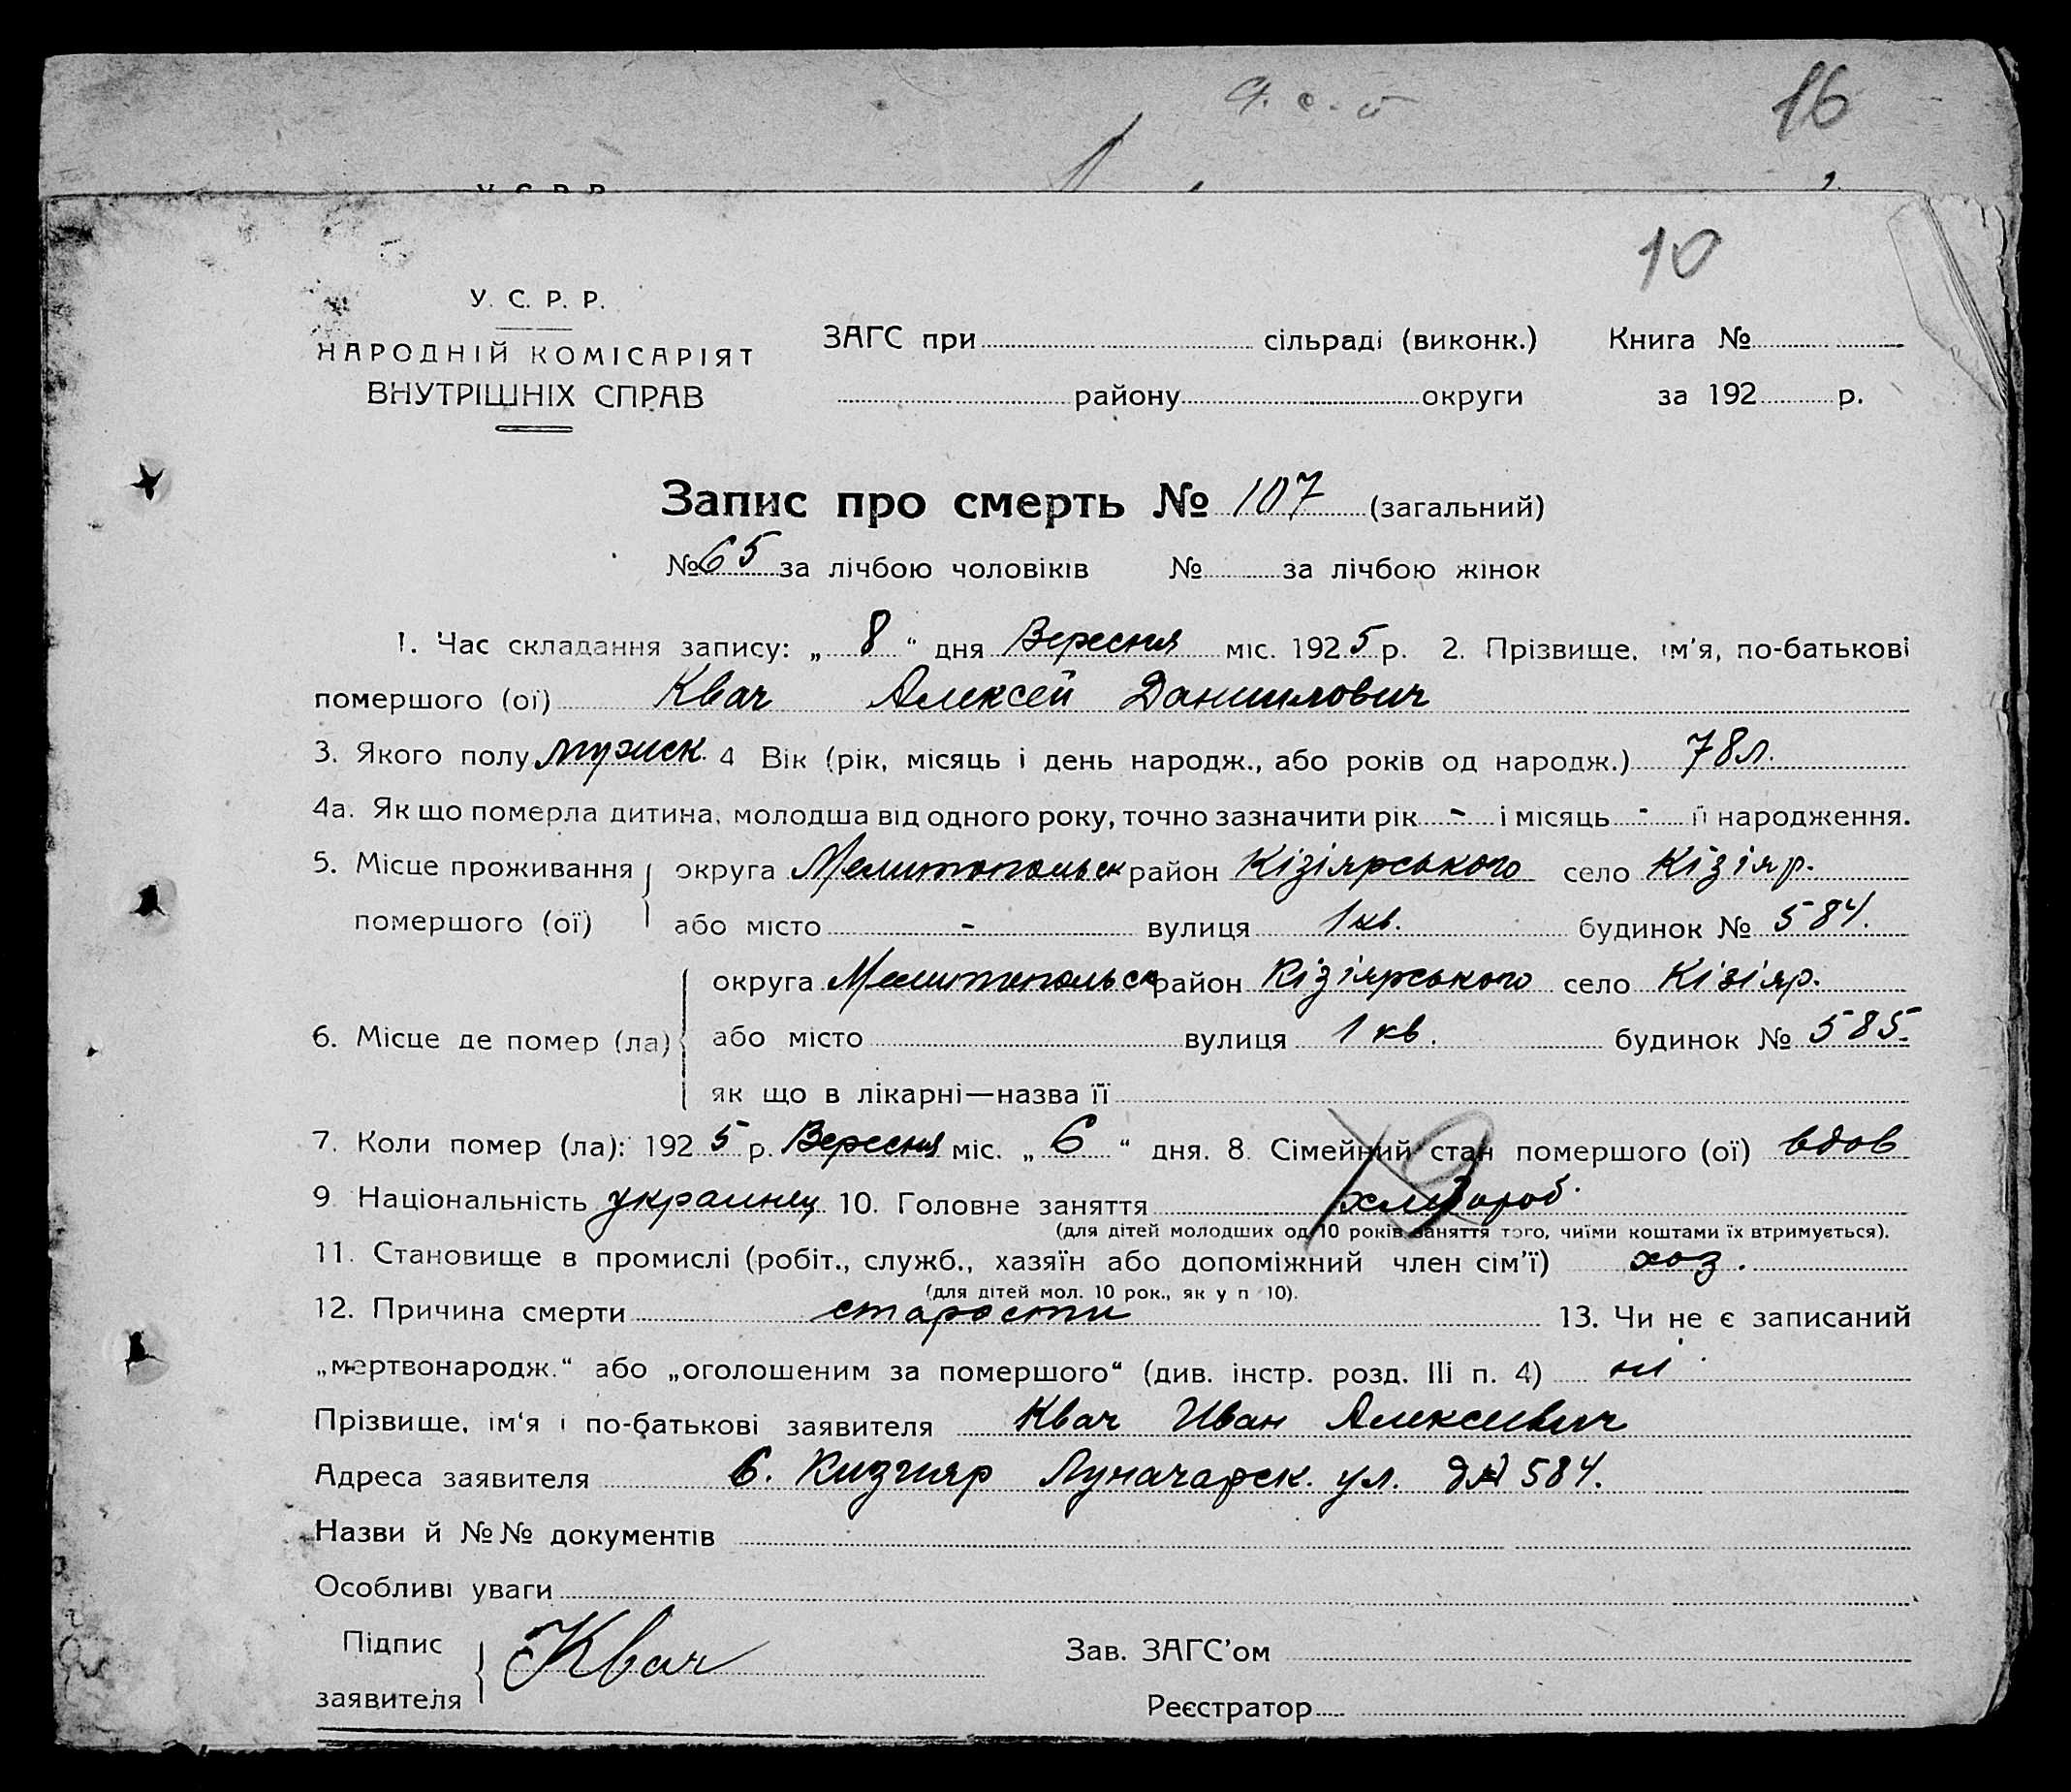 16
У. С. Р. Р.
10
У. С. Р. Р.
НАРОДНІЙ КОМІСАРІЯТ
ВНУТРІШНІХ СПРАВ
ЗАГС при сільраді (виконк.) Книга №
району округи за 192 р.
Запис про смерть № 107 (загальний)
№ 65 за лічбою чоловіків № за лічбою жінок
1. Час складання запису: „ 8 “ дня Вересня міс. 1925 р. 2. Прізвище, ім'я, по-батькові
помершого (ої) Квач Алексей Даниилович
3. Якого полу мужск. 4 Вік (рік, місяць і день народж., або років од народж.) 78 л.
4а. Як що померла дитина, молодша від одного року, точно зазначити рік - і місяць - її народження.
5. Місце проживання округа Мелитопольск район Кізіярського село Кізіяр.
помершого (ої) або місто - вулиця 1 кв. будинок № 584.
округа Мелитопольск район Кізіярського село Кізіяр.
6. Місце де помер (ла) або місто вулиця 1 кв. будинок № 585.
як що в лікарні—назва її
7. Коли помер (ла): 1925 р. Вересня міс. „ 6 “ дня. 8. Сімейний стан помершого (ої) вдов
9 Національність украинец 10. Головне заняття хлебороб.
(для дітей молодших од 10 років заняття того, чиїми коштами їх втримується).
11. Становище в промислі (робіт., служб., хазяїн або допоміжний член сім'ї) хоз.
(для дітей мол. 10 рок., як у п 10).
12. Причина смерти старости 13. Чи не є записаний
„мертвонародж.“ або „оголошеним за помершого“ (див. інстр. розд. III п. 4) ні
Прізвище, ім'я і по-батькові заявителя Квач Иван Алексеевич
Адреса заявителя с. Кизгияр Луначарск. ул. д№ 584.
Назви й №№ документів
Особливі уваги
Підпис заявителя Квач Зав. ЗАГС'ом
Реєстратор